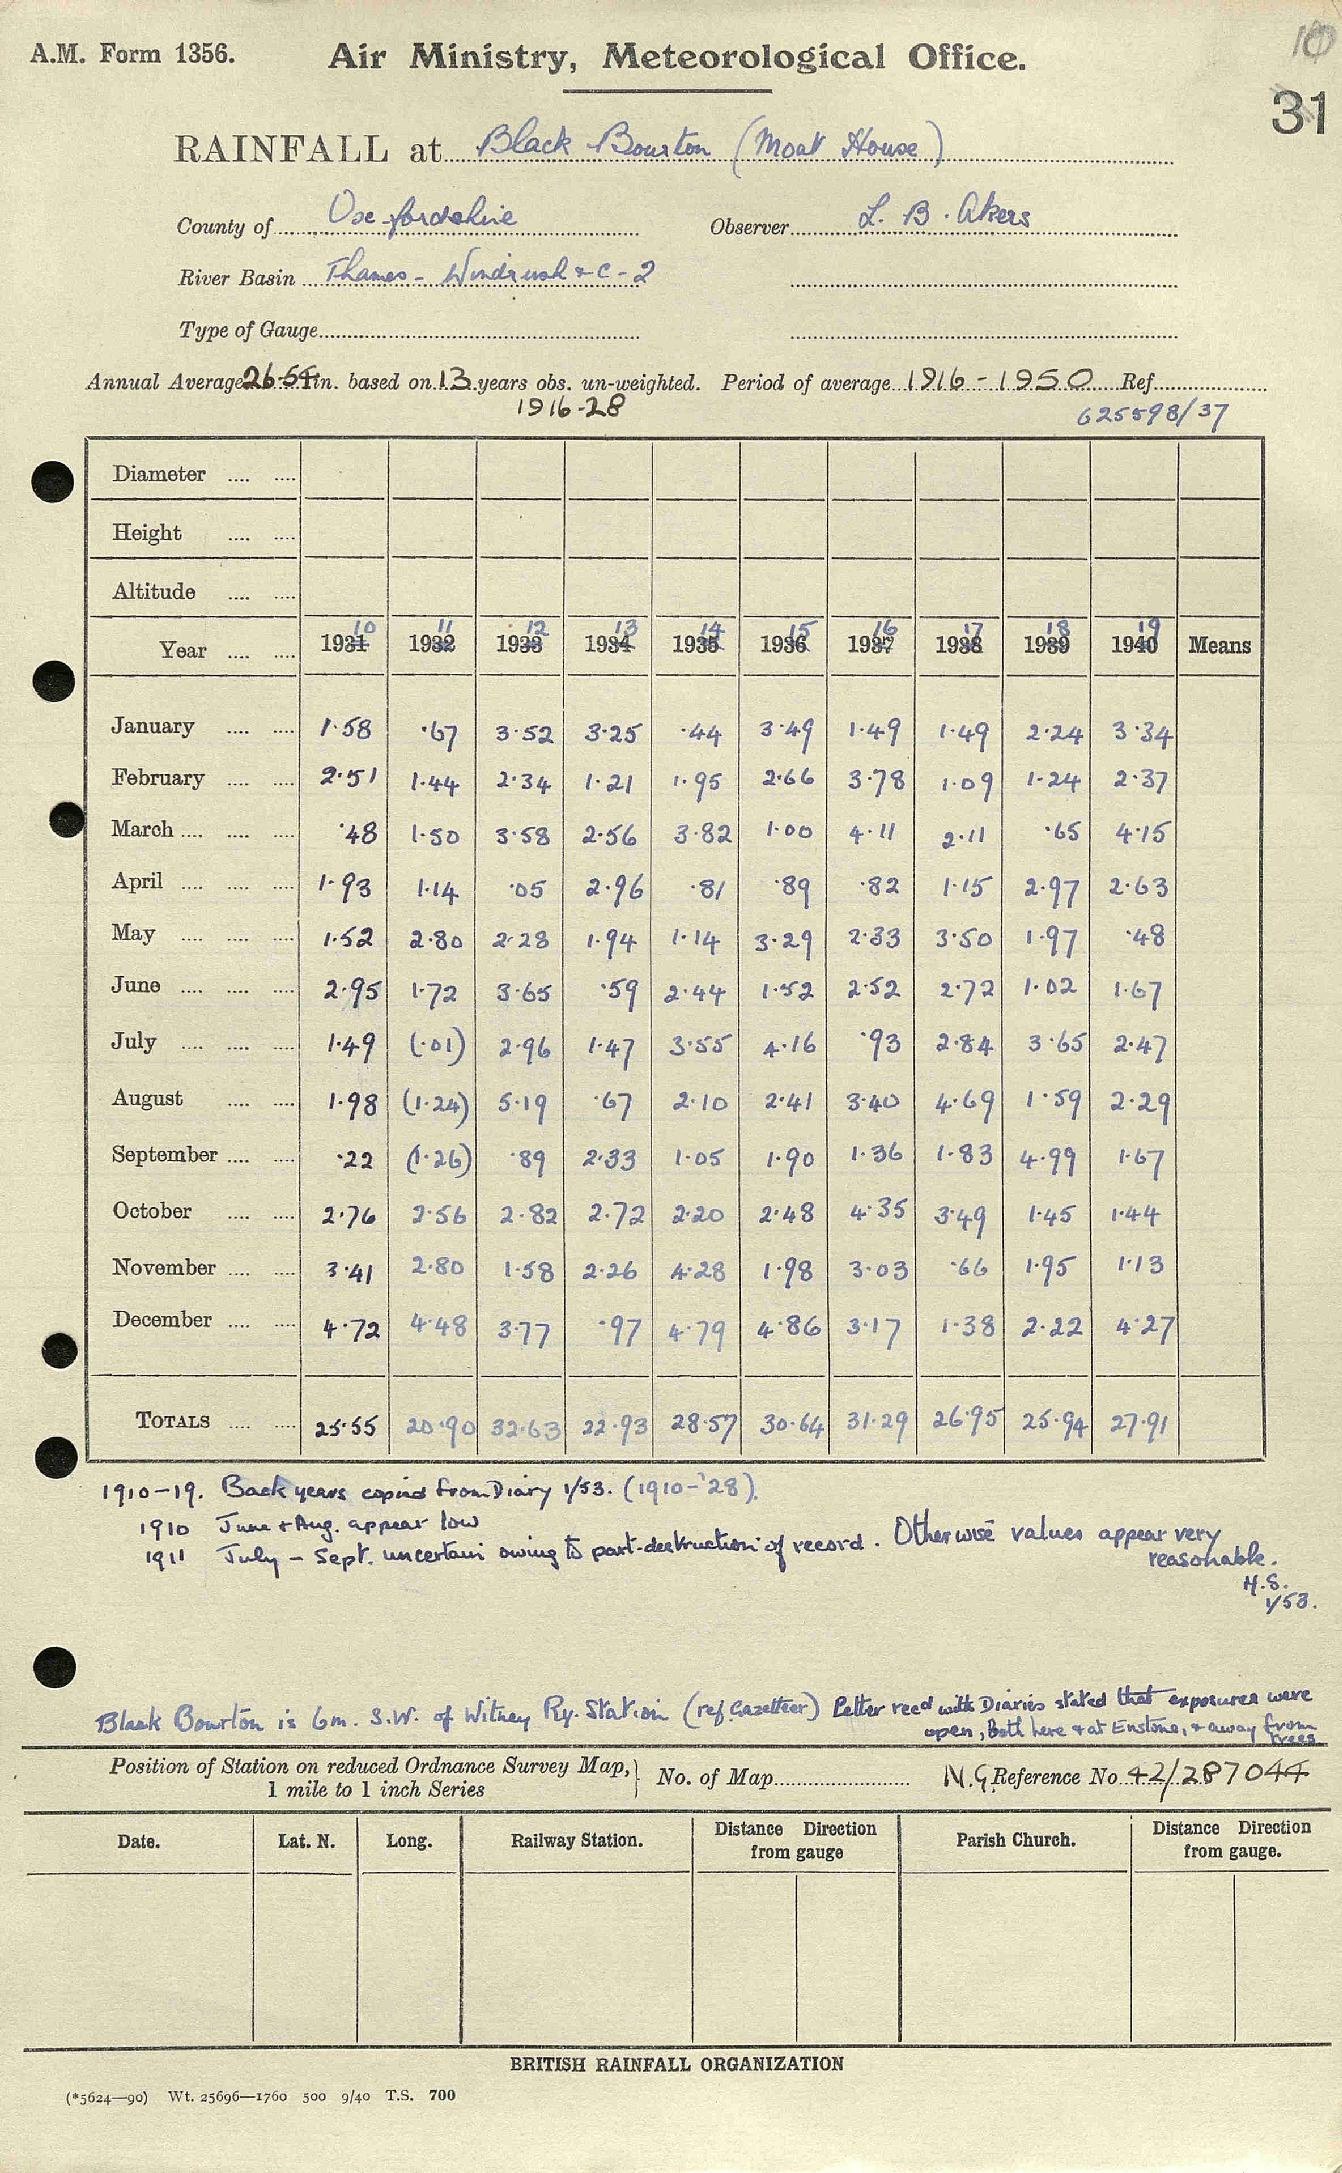 A.M. Form 1356. Air Ministry, Meteorological Office.
10
31
RAINFALL at Black Bourton (Moat House)
County of Oxfordshire Observer L. B. Akers
River Basin Thames - Windrush & C - 2
Type of Gauge
Annual Average 26.54 in. based on 13 years obs. un-weighted. Period of average 1916 - 1950 Ref.
1916-28 625598/37
Diameter .... ....
Height .... ....
Altitude .... ....
10 11 12 13 14 15 16 17 18 19
Year .... .... 1931 1932 1933 1934 1935 1936 1937 1938 1939 1940 Means
January .... .... 1.58 .67 3.52 3.25 .44 3.49 1.49 1.49 2.24 3.34
February .... .... 2.51 1.44 2.34 1.21 1.95 2.66 3.78 1.09 1.24 2.37
March .... .... .... .48 1.50 3.58 2.56 3.82 1.00 4.11 2.11 .65 4.15
April .... .... .... 1.93 1.14 .05 2.96 .81 .89 .82 1.15 2.97 2.63
May .... .... .... 1.52 2.80 2.28 1.94 1.14 3.29 2.33 3.50 1.97 .48
June .... .... .... 2.95 1.72 3.65 .59 2.44 1.52 2.52 2.72 1.02 1.67
July .... .... .... 1.49 (.01) 2.96 1.47 3.55 4.16 .93 2.84 3.65 2.47
August .... .... 1.98 (1.24) 5.19 .67 2.10 2.41 3.40 4.69 1.59 2.29
September .... .... .22 (1.26) .89 2.33 1.05 1.90 1.36 1.83 4.99 1.67
October .... .... 2.76 2.56 2.82 2.72 2.20 2.48 4.35 3.49 1.45 1.44
November .... .... 3.41 2.80 1.58 2.26 4.28 1.98 3.03 .66 1.95 1.13
December .... .... 4.72 4.48 3.77 .97 4.79 4.86 3.17 1.38 2.22 4.27
TOTALS .... .... 25.55 20.90 32.63 22.93 28.57 30.64 31.29 26.95 25.94 27.91
1910-19. Back years copied from Diary 1/53. (1910-'28).
1910 June & Aug. appear low
1911 July - Sept. uncertain owing to part-destruction of record. Otherwise values appear very
reasonable.
H.S.
1/53.
Black Bourton is 6m. S.W. of Witney Ry. Station (ref. Gazetteer) Letter recd with Diaries stated that exposures were
open, both here & at Enstone, & away from
trees
Position of Station on reduced Ordnance Survey Map, No. of Map N.G. Reference No. 42/287044
1 mile to 1 inch Series
Date. Lat. N. Long. Railway Station. Distance Direction Parish Church. Distance Direction
from gauge from gauge.
BRITISH RAINFALL ORGANIZATION
(*5624—90) Wt. 25696—1760 500 9/40 T.S. 700